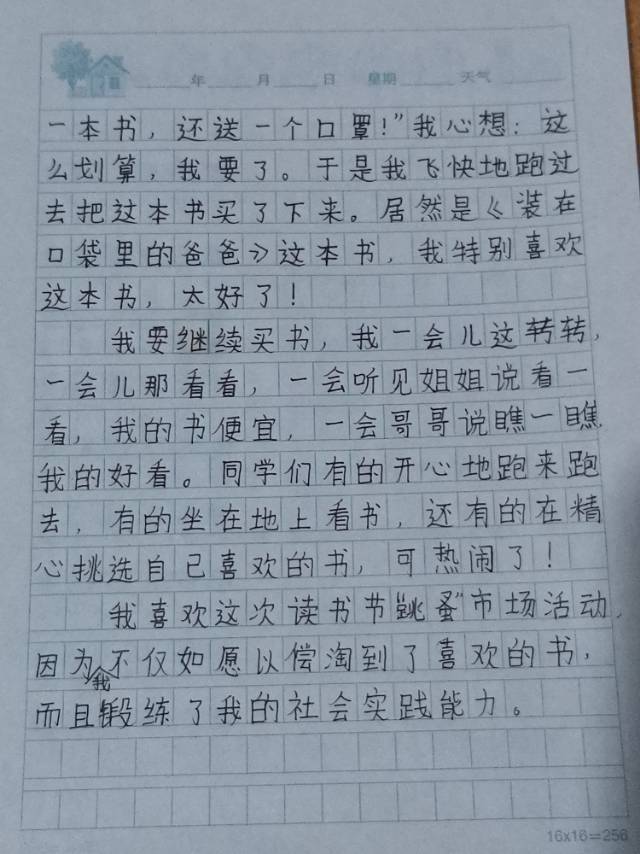 年 月 日 星期 天气
一本书，还送一个口罩！”我心想：这
么划算，我要了。于是我飞快地跑过
去把这本书买了下来。居然是《装在
口袋里的爸爸》这本书，我特别喜欢
这本书，太好了！
我要继续买书，我一会儿这转转，
一会儿那看看，一会听见姐姐说看一
看，我的书便宜，一会哥哥说瞧一瞧，
我的好看。同学们有的开心地跑来跑
去，有的坐在地上看书，还有的在精
心挑选自己喜欢的书，可热闹了！
我喜欢这次读书节“跳蚤”市场活动，
因为我不仅如愿以偿淘到了喜欢的书，
而且锻练了我的社会实践能力。
16x16=256